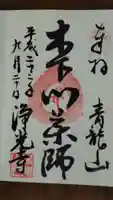 奉拝　青龍山
木下川薬師
平成二十二年
九月二十日
浄光寺